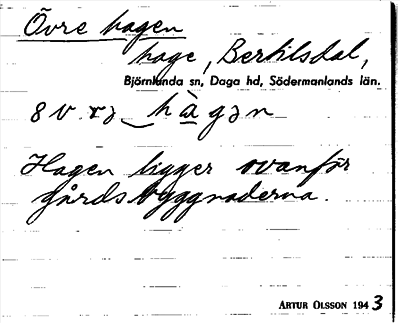 Övre hagen
hage, Berkilsdal,
Björnlunda sn, Daga hd, Södermanlands län.
hàgən
Hagen ligger ovanför
gårdsbyggnaderna.
ARTUR OLSSON 1943